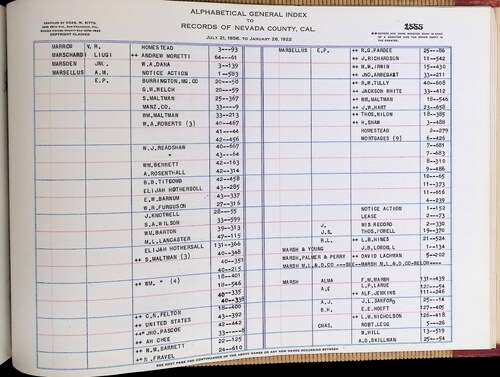 ALPHABETICAL GENERAL INDEX
TO
RECORDS OF NEVADA COUNTY, CAL.
JULY 21, 1856, TO JANUARY 26, 1922
1555
COPYRIGHT CLAIMED
MARROW V.R. HOMESTEAD 3---93
MARSCHARDI LIUGI ++ ANDREW MORETTI 64---61
MARSDEN JNO. W.A. DANA 3--139
MARSELLUS A.M. NOTICE ACTION 1--583
E.P. BURRINGTON, HG.CO 20---58
G.W. WELCH 20---59
S. MALTMAN 25--367
MANZ.CO. 3----9
WM. MALTMAN 33--213
W.A. ROBERTS (3) 40--467
41---44
42--456
W.J. READSHAW 40--667
" 43---64
WM. BENNETT 42--163
A. ROSENTHALL 42--314
B.B. TITCOMB 42--458
ELIJAH HOTHERSOLL 43--285
E.W. BARNUM 43--337
W.R. FERGUSON 27--316
J. KNOTRELL 28---55
S.A. WILSON 33--599
WM. BARTON 39--313
M.L. LANCASTER 47--115
ELIJAH HOTHERSALL 131--366
++ S. MALTMAN (3) 40--348
40--351
40--215
18--401
++ WM. " (4) 18--546
40--335
40--338
18--400
++ O.N. FELTON 43--392
++ UNITED STATES 42--442
++ JNO. PASCOE 33----8
++ AH CHEE 22--125
++ N.M. BARRETT 24--610
++ N. FRAVEL
MARSELLUS E.P. ++ R.G. PARDEE 25---86
++ J. RICHARDSON 11--542
++ M.W. IRWIN 15--430
++ JNO. ARBEGAST 33--211
++ R.W. TULLY 40--608
++ JACKSON WHITE 33--412
++ WM. MALTMAN 18--546
++ J.W. HART 23--658
++ THOS. NILON 18--385
++ H. SHAW 3--488
HOMESTEAD 2--279
MORTGAGES (9) 6--426
7--681
7--683
8--310
9--486
18--65
11--373
11--616
4--239
NOTICE ACTION 1--152
LEASE 2---73
J. WIS RECORD 2--330
J.S. THOS. FORELL 19--370
R.L. ++ L.B. HINES 21--524
MARSH & YOUNG J.B. LOBDELL 1--134
MARSH, PALMER & PERRY ++ DAVID LACHMAN 5--202
MARSH M.L.& D.CO ---SEE--MARSH M.L.& D.CO-BELOW----
MARSH ALMA F.M. MARSH 131--439
A.E L.P. LARUE 125---54
++ ALF. JENKINS 111--246
A.J. J.L. SANFORD 25---14
B.H. E.E. HOLFT 127--405
++ L.W. NICHOLSON 126--418
CHAS. ROBT. LEGG 5---26
W. HILL 13--519
A.D. SKILLMAN 25---54
SEE NEXT PAGE FOR CONTINUANCE OF THE ABOVE NAMES OR ANY NEW NAMES OCCURRING BETWEEN